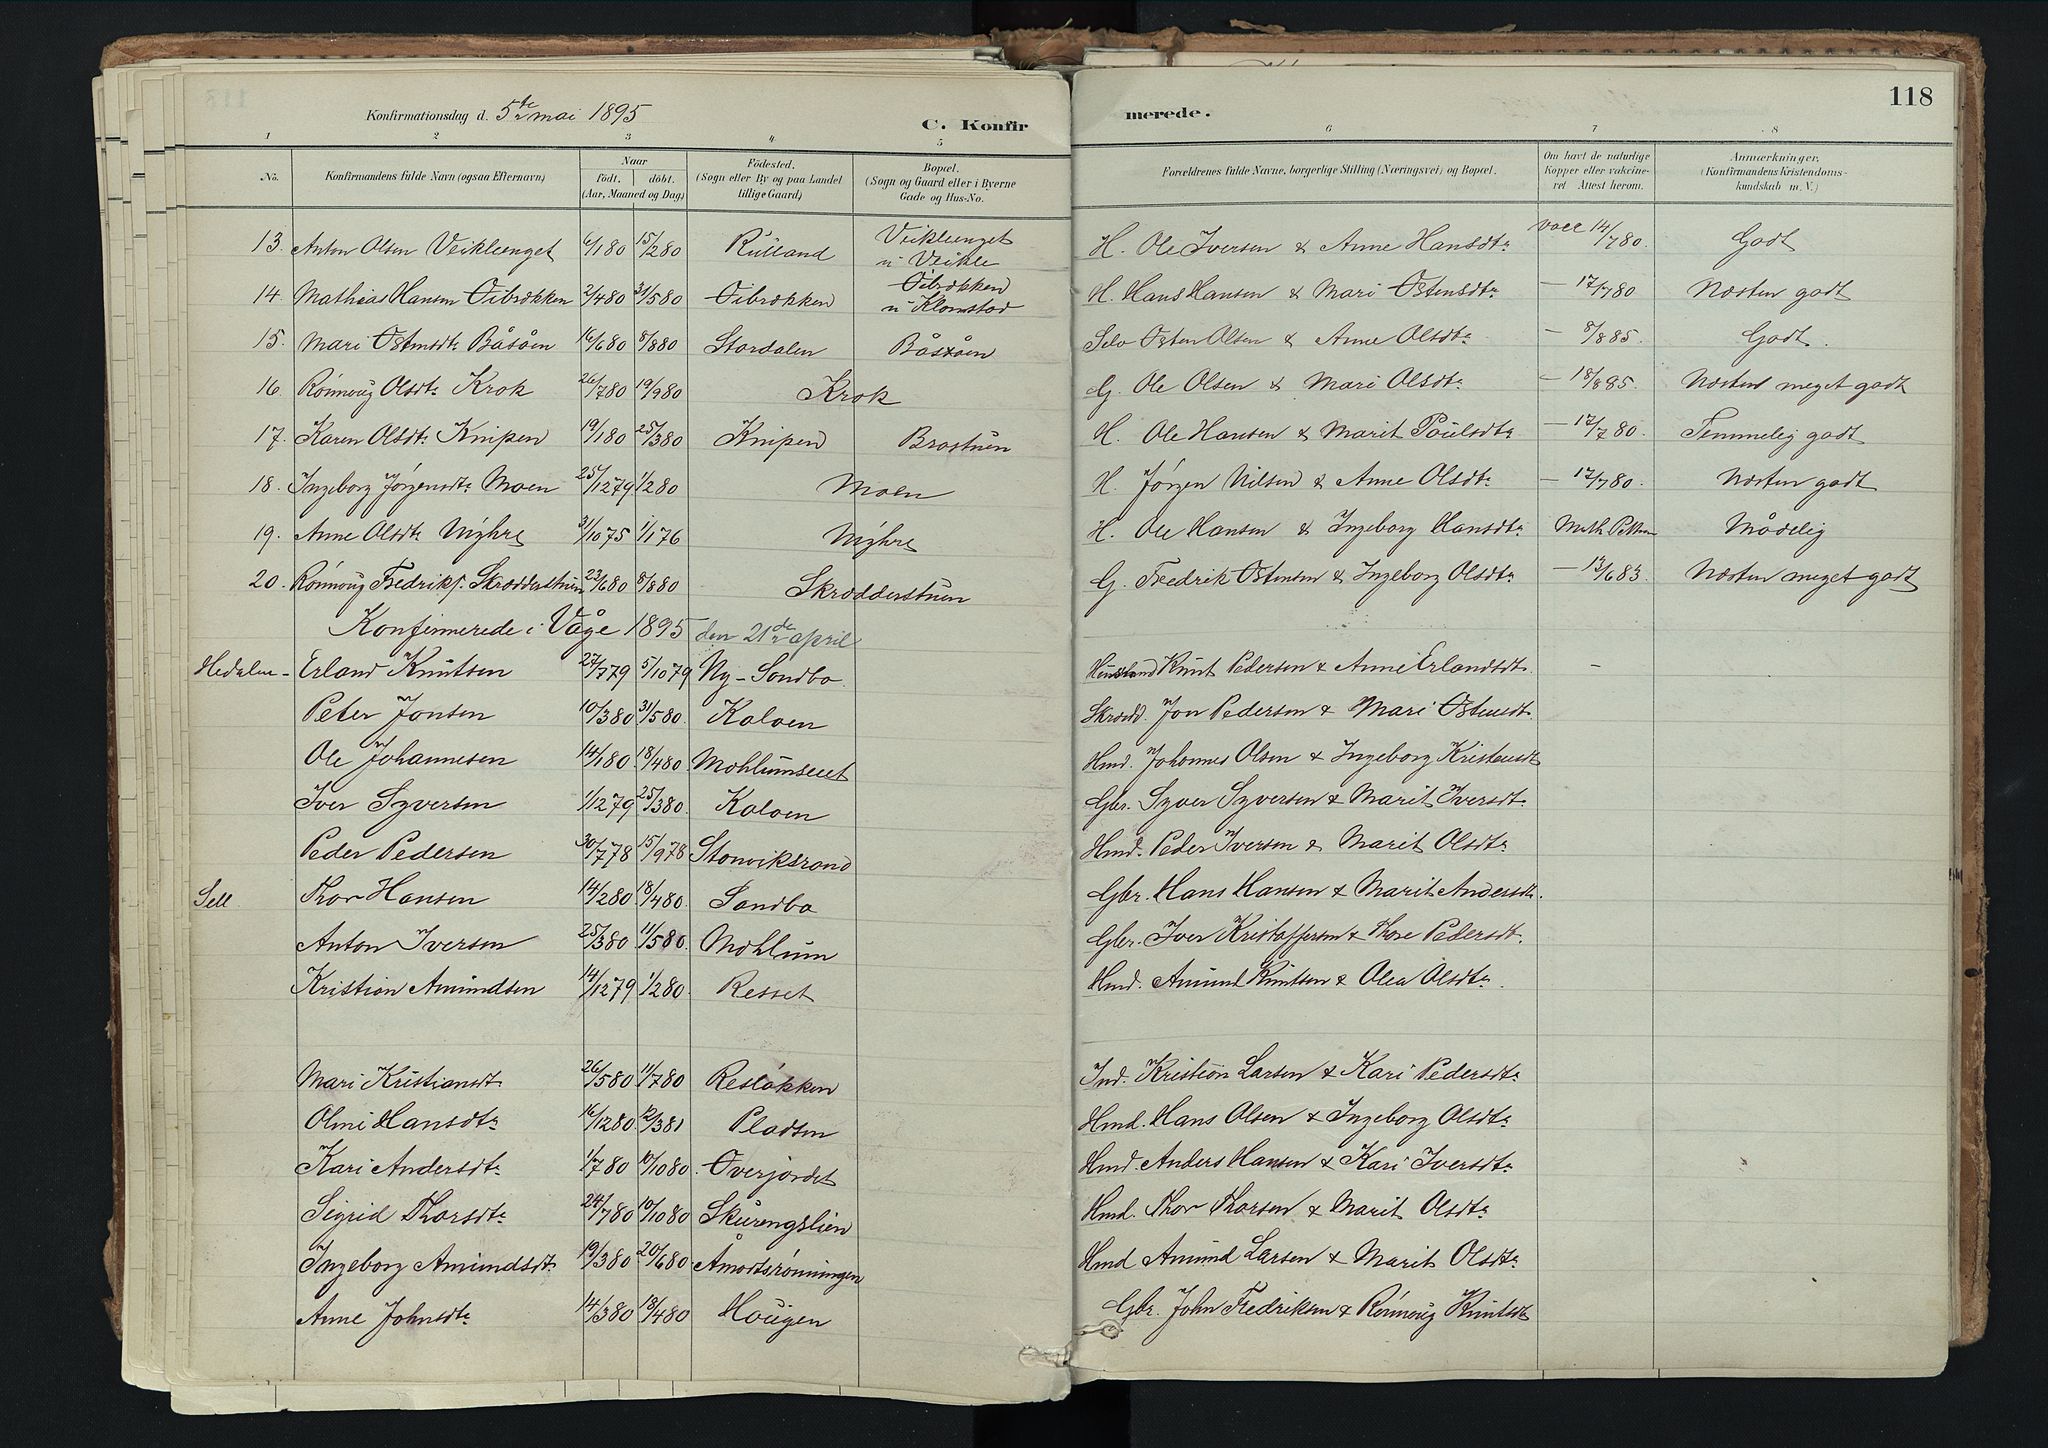 118
Konfirmationsdag d. 5te mai 1895
C. Konfirmerede.
1 2 3 4 5 6 7 8
No. Konfirmandens fulde Navn (ogsaa Efternavn). Naar født. døbt. (Aar, Maaned og Dag.) Födested. (Sogn eller By og paa Landet tillige Gaard.) Bopæl. (Sogn og Gaard eller i Byerne Gade og Hus-No. Forældrenes fulde Navne, borgerlige Stilling (Næringsvei) og Bopæl. Om havt de naturlige Kopper eller vakcineret. Attest herom. Anmærkninger. (Konfirmandens Kristendomskundskab m. V.)
13. Anton Olsen Veiklenget 6/1 80 15/2 80 Rulland Veiklenget u Veikle H. Ole Iversen & Anne Hansdtr vacc 14/7 80. Godt
14. Mathias Hansen Øibrækken 2/4 80 31/5 80 Øibrækken Øibrækken u Klomstad H. Hans Hansen & Mari Østensdtr — 17/7 80 Næsten godt
15. Mari Østensdtr Båsåen 16/6 80 8/8 80 Stordalen Båsåen Selv Østen Olsen & Anne Olsdtr — 8/8 85. Godt.
16. Rønnoug Olsdtr Krok 26/7 80 19/9 80 Krok G. Ole Olsen & Mari Olsdtr — 18/8 85. Næsten meget godt
17. Karen Olsdtr Knipen 19/1 80 25/3 80 Knipen Brostuen H. Ole Hansen & Marit Paulsdtr — 12/7 80. Temmelig godt
18. Ingeborg Jørgensdtr Moen 25/12 79 1/2 80 Moen H. Jørgen Nilsen & Anne Olsdtr — 12/7 80. Næsten godt
19. Anne Olsdtr Nyhre 31/10 75 1/1 76 Nyhre H. Ole Hansen & Ingeborg Hansdtr Mådelig
20. Rønnoug Fredriksd. Skrædderstuen 23/6 80 8/8 80 Skrædderstuen G. Fredrik Østensen & Ingeborg Olsdtr — 13/6 83. Næsten meget godt
Konfirmerede i Våge 1895 den 21de april
Hedalen – Erland Knutsen 27/7 79 5/10 79 Ny-Sandbo Husmand Knut Pedersen & Anne Erlandsdt. –
Peter Jonsen 10/3 80 31/5 80. Kaloen Skrædd. Jon Pedersen & Mari Østensdt.
Ole Johannesen 14/1 80. 18/4 80 Mæhlumseret Hmd. Johannes Olsen & Ingeborg Kristensdt
Iver Syversen 1/12 79 25/3 80. Kaloen Gbr. Syver Syversen & Marit Iversdt.
Peder Pedersen 30/7 78 15/9 78 Storviksrand Hmd. Peder Iversen & Marit Olsdtr
Sell Thor Hansen 14/2 80 18/4 80. Sandbo Gbr. Hans Hansen & Marit Andersdtr.
Anton Iversen 25/3 80 11/5 80. Mæhlum Gbr. Iver Kristoffersen & Thore Pedersdt.
Kristian Amundsen 14/12 79 1/2 80. Resset Hmd. Amund Knutsen & Olea Olsdtr.
Mari Kristiansdt 26/5 80 11/7 80 Resløkken Ind. Kristian Larsen & Kari Pedersdtr
Olmi Hansdtr 16/12 80 12/3 81 Pladsen Hmd. Hans Olsen & Ingeborg Olsdtr
Kari Andersdtr 1/7 80 10/10 80 Øverjordet Hmd. Anders Hansen & Kari Iversdtr
Sigrid Thorsdtr 24/7 80 10/10 80 Skurengslien Hmd. Thor Thorsen & Marit Olsdtr
Ingeborg Amundsdt. 19/3 80 20/6 80 Åmodtsrønningen Hmd Amund Larsen & Marit Olsdtr
Anne Johnsdtr 14/3 80 18/4 80 Hougen Gbr. John Fredriksen & Rønnoug Knutsdt